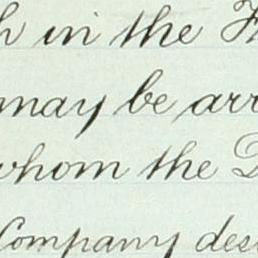 in the
may be
whom the
Company